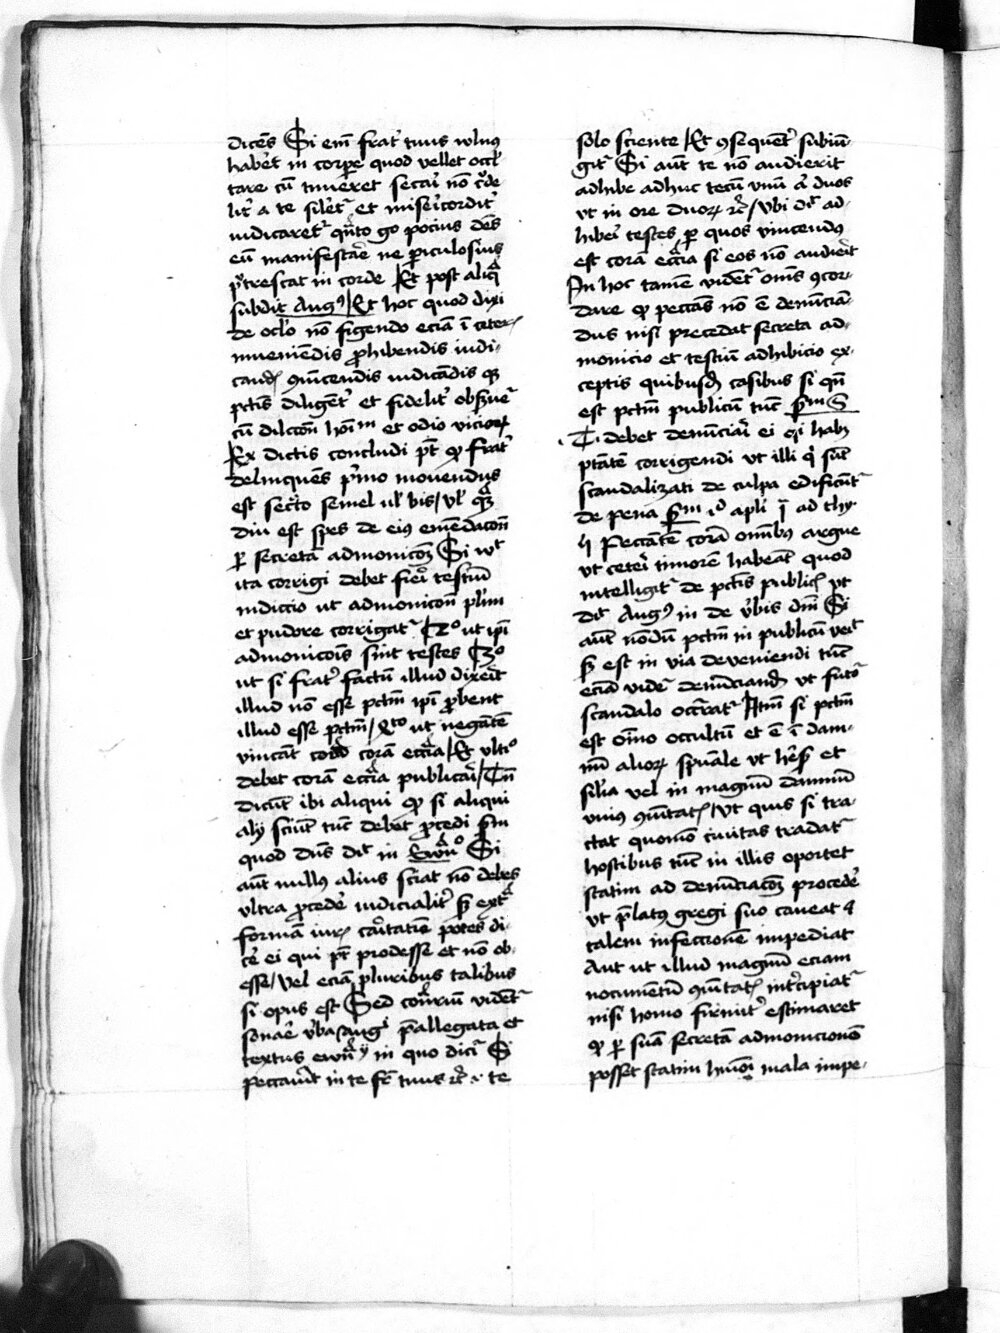 dicēs Si em̄ frater tuus vulnus
haberet in corpore quod vellet occul
tare cū timeret secari nō crude
lit' a te siletr̄ et misericordit'
iudicaretr̄ q̄nto go pocius debes
eū manifestare ne periculosius
putrescat in corde Et post aliqua
subdit Augus Et hoc quod dixi
de oclo nō figendo eciā ī ceteris
inueniendis prohibendis iudi-
candis cōuincendis iudicādis q3
pctīs diligent' et fidelit' obseruetr̄
cū dilcōn hoīm et odio vicior
Ex dictis concludi pt̄ q frater
delinquens primo mouendus
est secreto semel ul' bis / ul' quam
diu est spes de eius emendacōn
per secretā admonicōem Si ut
ita corrigi debet fieri testium
indiccio ut admonicōn plurium
et pudore corrigatr̄ 2o ut ipī
admonicōis sint testes 3o
ut si frater factū illud dixerit
illud nō esse pctm̄ ipī probent
illud esse pctm̄ / 4to ut negantē
vincāt corā ecclīa / Et ultīo
debet corā ecclīa publicari / Tn̄
dicūt ibi aliqui q si aliqui
alij sciūt tūc debet procedi secundum
quod dn̄s dicit in ewān° Si
aūt nullus alius sciat nō debes
ultra procedere iudicialit' secundum extra
formā iuris caritatiue potes di-
cere ei qui pt̄ prodesse et nō ob-
esse / vel eciā pluribus talibus
si opus est Sed contrariū videntr̄
sonare verba augi preallegata et
textus ewānij in quo dicitr̄ Si
peccauerit in te fr̄ tuus rc̄ · te
solo sciente / Et cōsequent' subiun-
gitr̄ Si aūt te nō audierit
adhibe adhuc tecū unū aut duos
ut in ore duor rc̄ / Ubi dicit ad-
hiberi testes per quos vincendus
est corā ecclīa si eos nō audierit
In hoc tamen videntr̄ om̄s cōcor-
dare q peccans nō ē denūcian-
dus nisi precedat secreta ad-
monicio et testiū adhibicio ex-
ceptis quibusdā casibus si quidem
est pctm̄ publicū tūc secundum S
T debet denūciari ei qui habet
ptātē corrigendi ut illi qui sunt
scandalizati de culpa edificētr̄
de pena secundum id apli j ad thy
5 Peccātē corā omībus argue
ut ceteri timorē habeāt quod
intelligitr̄ de pctīs publicis ut
dicit Augus in de verbis dm̄ Si
aūt nōdū pctm̄ in publicū venit
sed est in via deueniendi tūc
eciā videtr̄ denūciandū ut futuro
scandalo occurratr̄ Itm̄ si pctm̄
est omīo occultū et ē ī dam-
nū alior spūale ut heresis et
silia vel in magnū damnū
unius cōitatis / ut quis si tra-
ctat quomō ciuitas tradatr̄
hostibus tūc in illis oportet
statim ad denūciacōem procedere
ut prelatus gregi suo caueat et
talem infectionē impediat
Aut ut illud magnū eciam
nocumentū cōitatis intercipiatr̄
nisi homo firmit' estimaret
q per suā secretā admonicionē
posset statim hmōi mala impe-